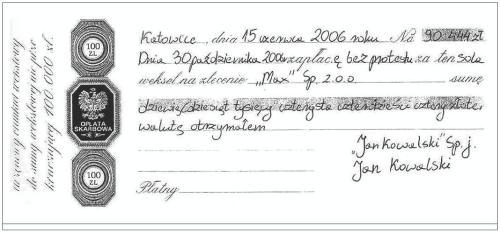 w szarej
do sumy wekslowej nie prze
kraczającej 100.000 zł.
100
ZŁ
OPŁATA
SKARBOWA
100
ZŁ
Katowice, dnia 15 czerwca 2006 roku Na 90 444 zł
Dnia 30 października 2006 zapłacę bez protestu za ten sola
weksel na zlecenie „Max" Sp. z o.o. sumę
dziewięćdziesiąt tysięcy czterysta czterdzieści cztery złote
walutę otrzymałem
„Jan Kowalski" Sp. j.
Jan Kowalski
Płatny